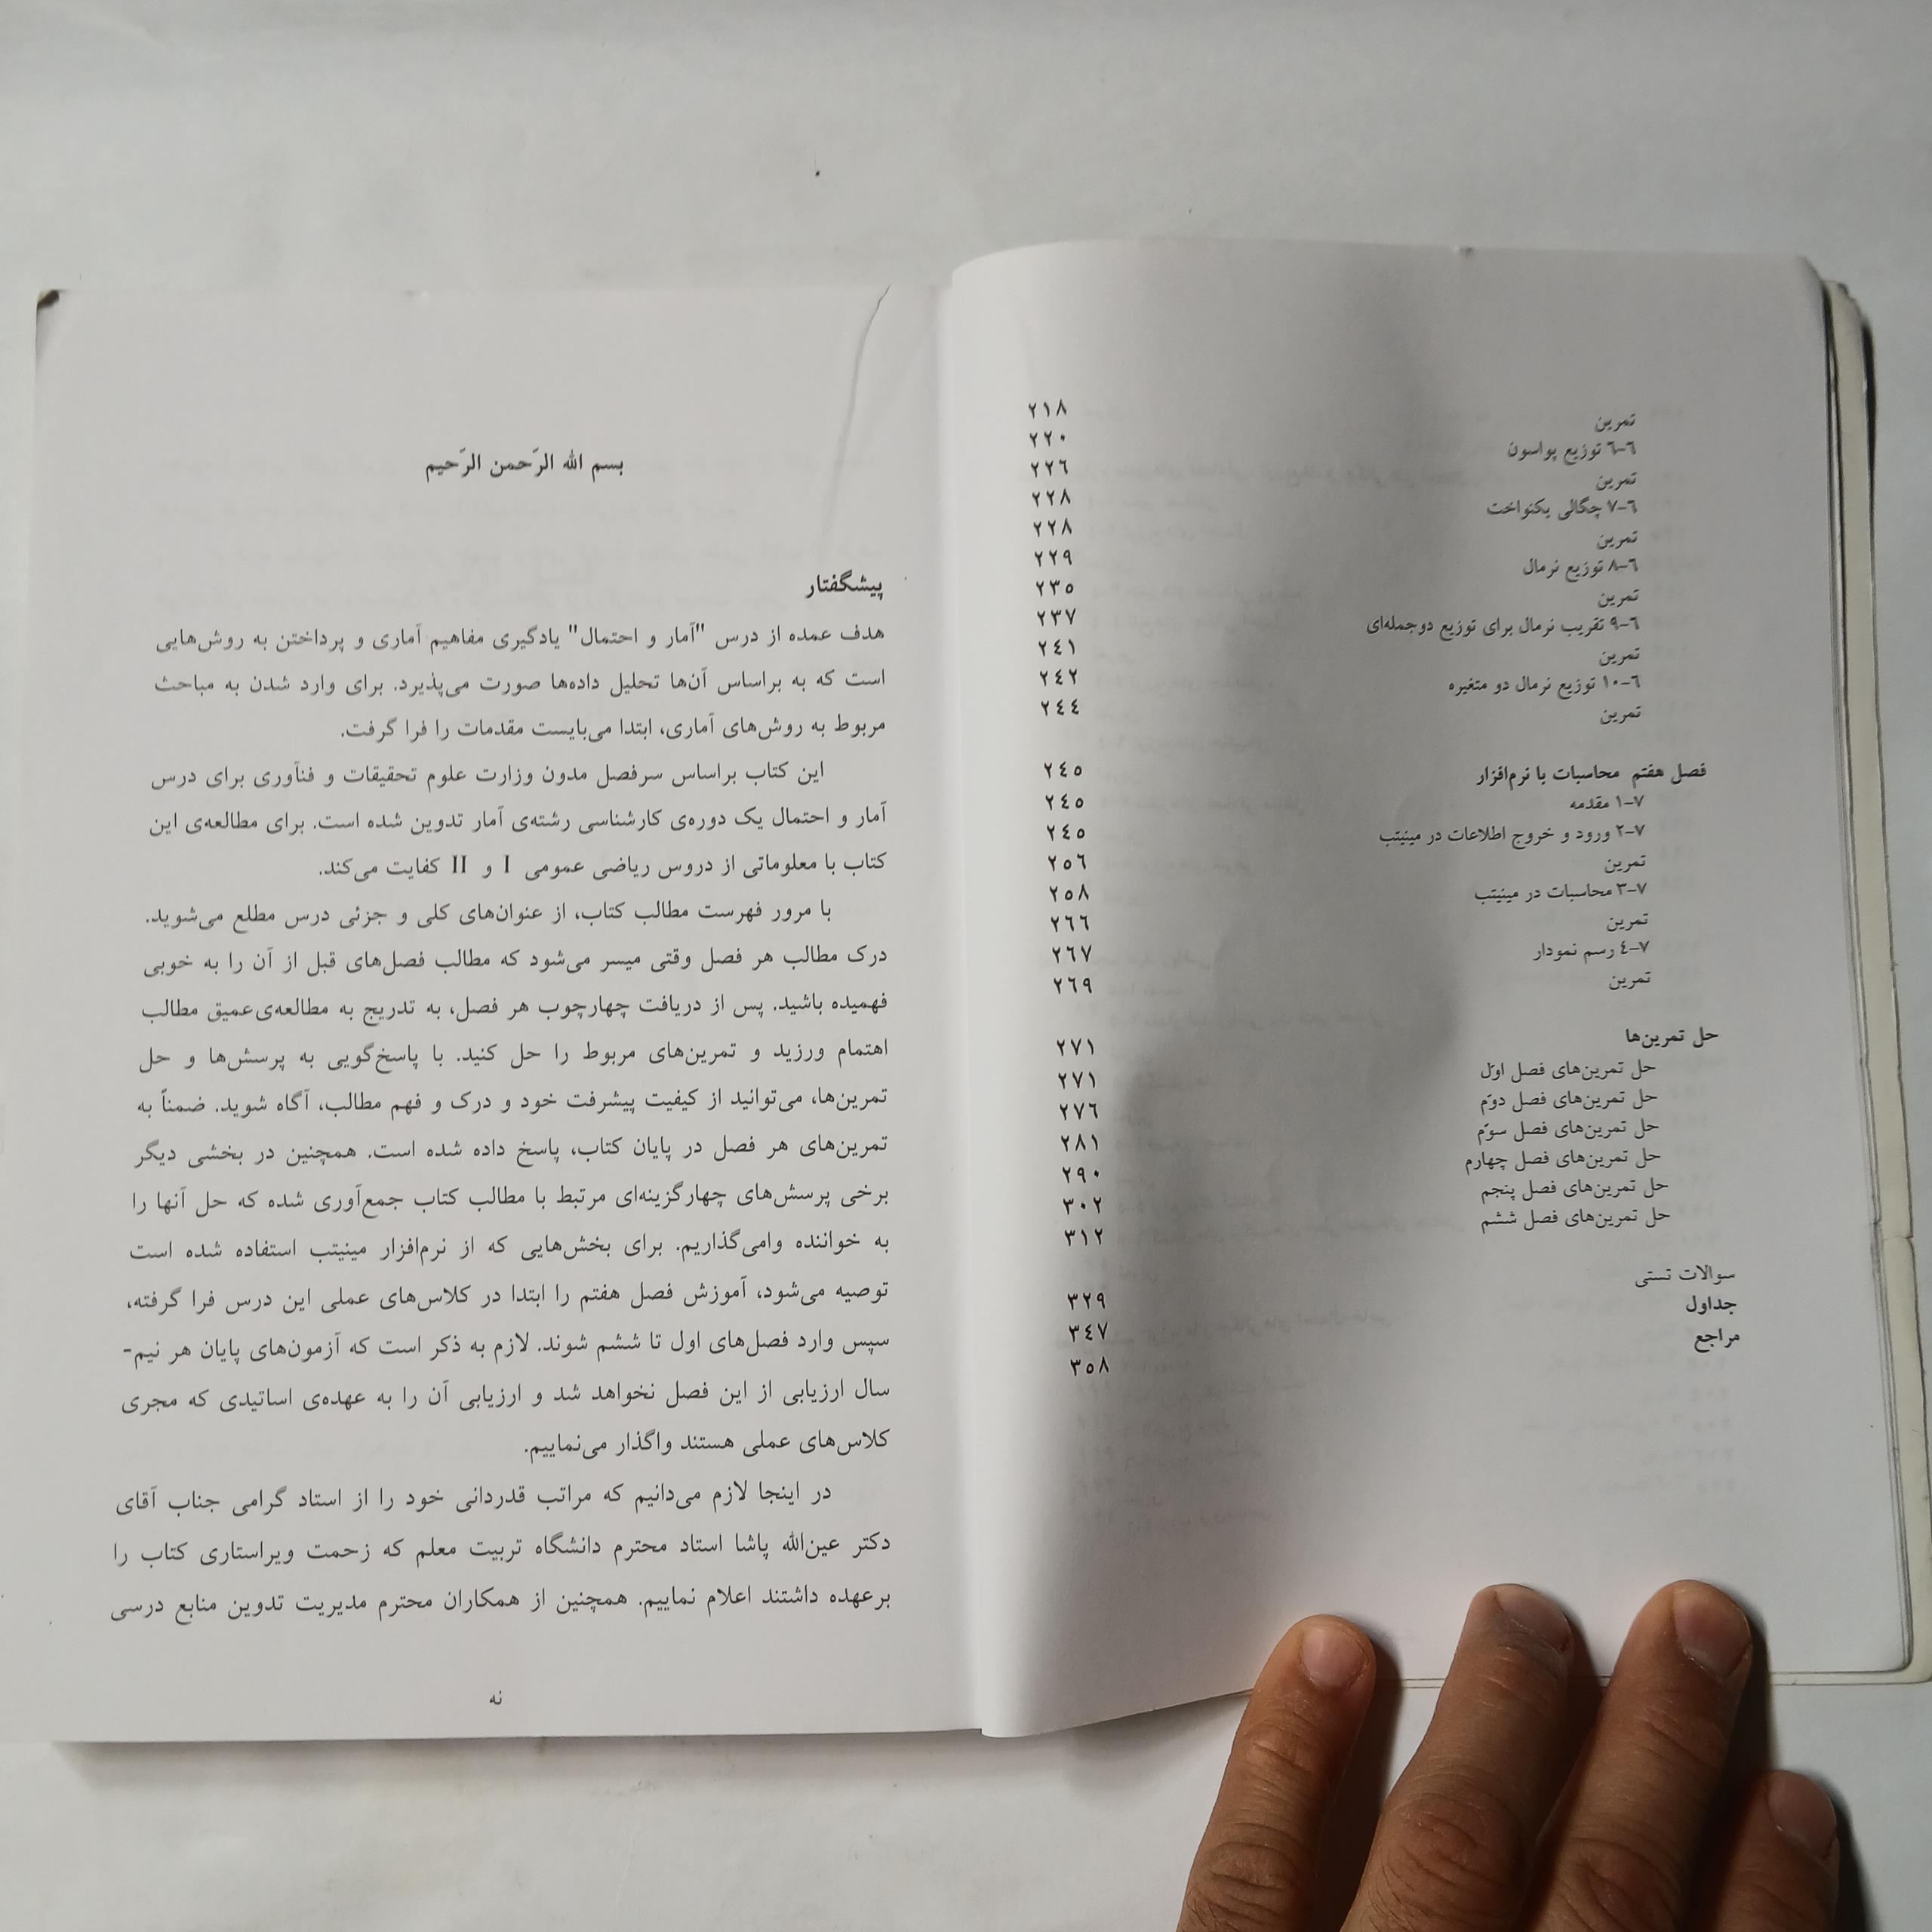 تمرین ۲۱۸
۶-۶ توزیع پواسون ۲۲۰
تمرین ۲۲۶
۶-۷ چگالی یکنواخت ۲۲۸
تمرین ۲۲۸
۶-۸ توزیع نرمال ۲۲۹
تمرین ۲۳۵
۶-۹ تقریب نرمال برای توزیع دوجمله‌ای ۲۳۷
تمرین ۲۴۱
۶-۱۰ توزیع نرمال دو متغیره ۲۴۲
تمرین ۲۴۴
فصل هفتم محاسبات با نرم‌افزار ۲۴۵
۷-۱ مقدمه ۲۴۵
۷-۲ ورود و خروج اطلاعات در مینیتب ۲۴۵
تمرین ۲۵۶
۷-۳ محاسبات در مینیتب ۲۵۸
تمرین ۲۶۶
۷-۴ رسم نمودار ۲۶۷
تمرین ۲۶۹
حل تمرین‌ها ۲۷۱
حل تمرین‌های فصل اوّل ۲۷۱
حل تمرین‌های فصل دوّم ۲۷۶
حل تمرین‌های فصل سوّم ۲۸۱
حل تمرین‌های فصل چهارم ۲۹۰
حل تمرین‌های فصل پنجم ۳۰۲
حل تمرین‌های فصل ششم ۳۱۲
سوالات تستی ۳۲۹
جداول ۳۴۷
مراجع ۳۵۸
بسم الله الرّحمن الرّحیم
پیشگفتار
هدف عمده از درس "آمار و احتمال" یادگیری مفاهیم آماری و پرداختن به روش‌هایی
است که به براساس آن‌ها تحلیل داده‌ها صورت می‌پذیرد. برای وارد شدن به مباحث
مربوط به روش‌های آماری، ابتدا می‌بایست مقدمات را فرا گرفت.
این کتاب براساس سرفصل مدون وزارت علوم تحقیقات و فنآوری برای درس
آمار و احتمال یک دوره‌ی کارشناسی رشته‌ی آمار تدوین شده است. برای مطالعه‌ی این
کتاب با معلوماتی از دروس ریاضی عمومی I و II کفایت می‌کند.
با مرور فهرست مطالب کتاب، از عنوان‌های کلی و جزئی درس مطلع می‌شوید.
درک مطالب هر فصل وقتی میسر می‌شود که مطالب فصل‌های قبل از آن را به خوبی
فهمیده باشید. پس از دریافت چهارچوب هر فصل، به تدریج به مطالعه‌ی عمیق مطالب
اهتمام ورزید و تمرین‌های مربوط را حل کنید. با پاسخ‌گویی به پرسش‌ها و حل
تمرین‌ها، می‌توانید از کیفیت پیشرفت خود و درک و فهم مطالب، آگاه شوید. ضمناً به
تمرین‌های هر فصل در پایان کتاب، پاسخ داده شده است. همچنین در بخشی دیگر
برخی پرسش‌های چهارگزینه‌ای مرتبط با مطالب کتاب جمع‌آوری شده که حل آنها را
به خواننده وامی‌گذاریم. برای بخش‌هایی که از نرم‌افزار مینیتب استفاده شده است
توصیه می‌شود، آموزش فصل هفتم را ابتدا در کلاس‌های عملی این درس فرا گرفته،
سپس وارد فصل‌های اول تا ششم شوند. لازم به ذکر است که آزمون‌های پایان هر نیم-
سال ارزیابی از این فصل نخواهد شد و ارزیابی آن را به عهده‌ی اساتیدی که مجری
کلاس‌های عملی هستند واگذار می‌نماییم.
در اینجا لازم می‌دانیم که مراتب قدردانی خود را از استاد گرامی جناب آقای
دکتر عین‌الله پاشا استاد محترم دانشگاه تربیت معلم که زحمت ویراستاری کتاب را
برعهده داشتند اعلام نماییم. همچنین از همکاران محترم مدیریت تدوین منابع درسی
نه